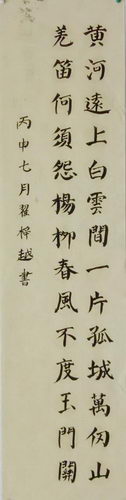 黃河遠上白雲間一片孤城萬仞山
羌笛何須怨楊柳春風不度玉門關
丙申七月翟梓越書